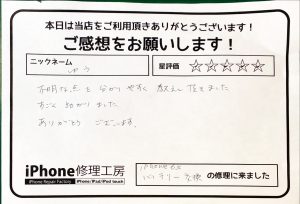 本日は当店をご利用頂きありがとうございます!
ご感想をお願いします!
ニックネーム
ゆう
星評価 ☆☆☆☆☆
不明な点を分かりやすく教えて頂きました
すごく助かりました
ありがとうございます。
iPhone修理工房
iPhone Repair Factory iPhone/iPad/iPod touch
iPhone6s
バッテリー交換 の修理に来ました